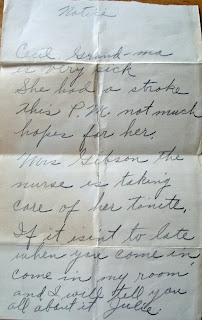 Notice
Cecil Grand-ma
is very sick
She had a stroke
this P.M. not much
hopes for her.
Mrs Gibson the
nurse is taking
care of her tonite.
If it isint to late
when you come in
come in my room
and I will tell you
all about it Julie